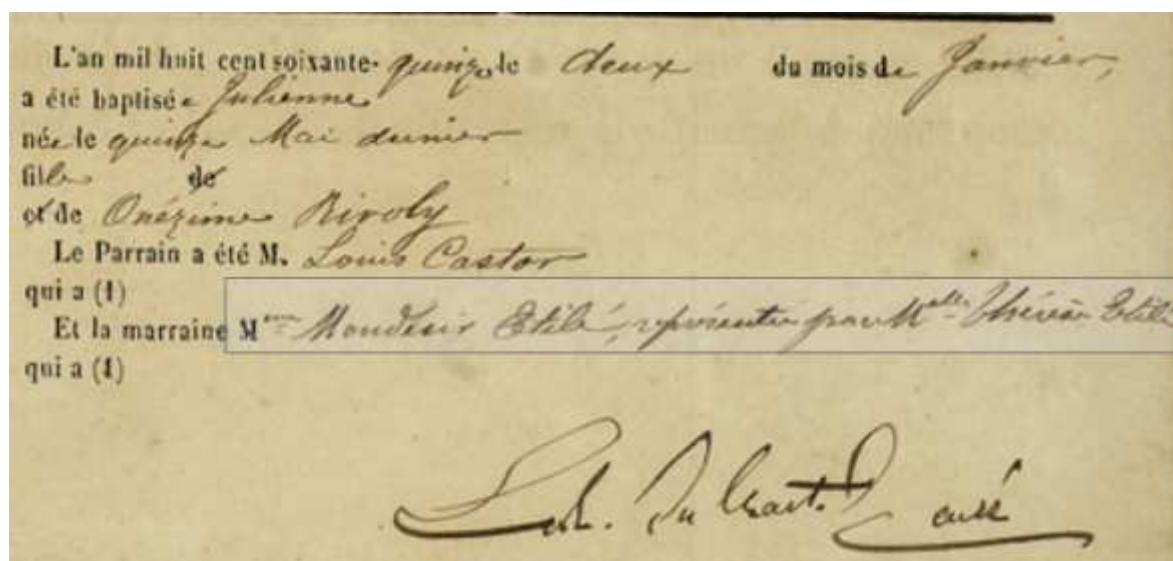 L'an mil huit cent soixante-quinze, le deux du mois de Janvier,
a été baptisée Julienne
née le quinze Mai dernier
fille de
et de Onézime Rivoly
Le Parrain a été M. Louis Castor
qui a (1)
Et la marraine Mme Mondésir Etilé, représentée par Melle Thérèse Etilé
qui a (1)
curé